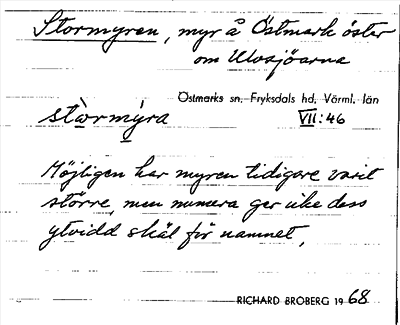 Stormyren, myr å Östmark öster
om Ulvsjöarna
Östmarks sn. Fryksdals hd. Värml. län
stòrmýra VII:46
Möjligen har myren tidigare varit
större, men numera ger icke dess
ytvidd skäl för namnet.
RICHARD BROBERG 1968